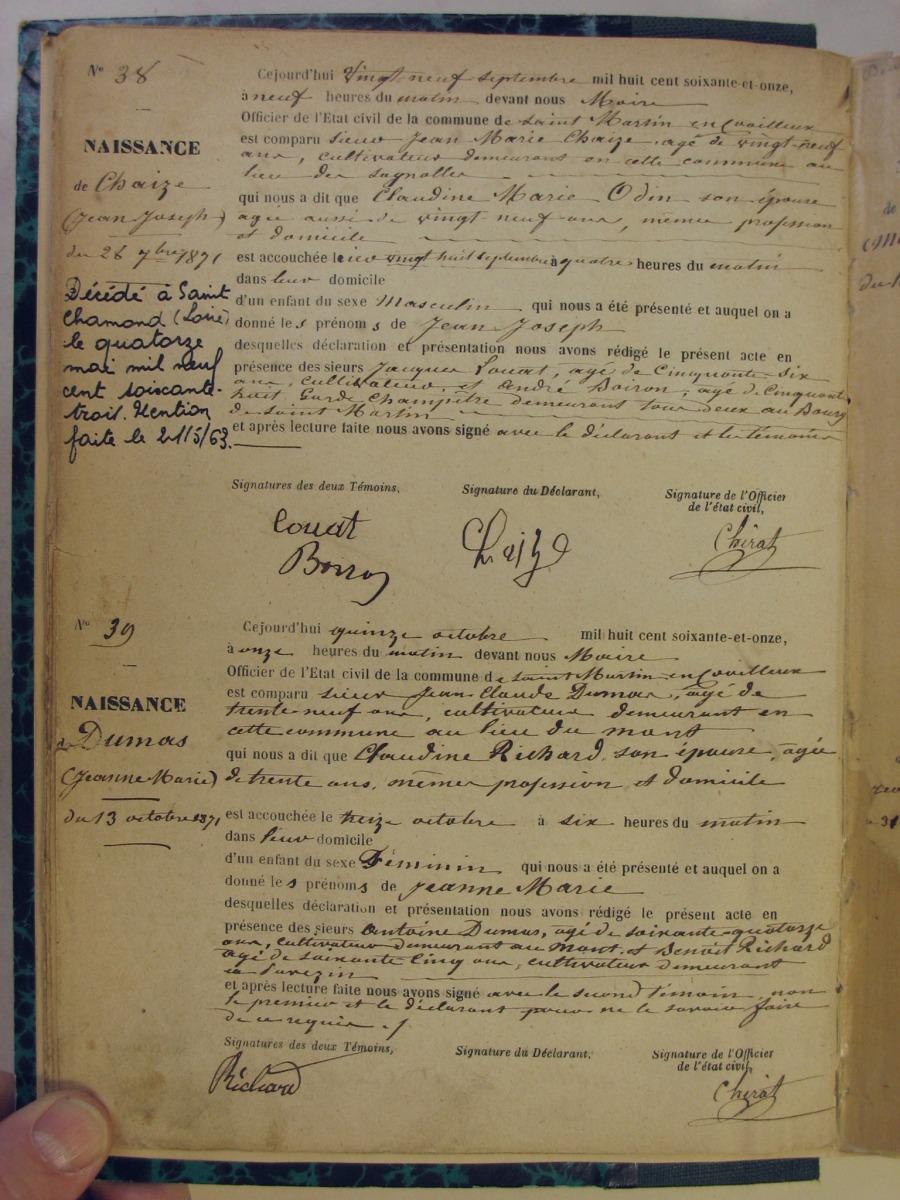 N° 38
NAISSANCE
de Chaize
(Jean Joseph)
du 28 7bre 1871
Décédé à Saint
Chamond (Loire)
le quatorze
mai mil neuf
cent soixante-
trois. Mention
faite le 21/5/63.
Cejourd'hui vingt neuf septembre mil huit cent soixante-et-onze,
à neuf heures du matin devant nous Maire
Officier de l'Etat civil de la commune de Saint Martin en Coailleux
est comparu sieur Jean Marie Chaize, agé de vingt-neuf
ans, cultivateur demeurant en cette commune au
lieu des
qui nous a dit que Claudine Marie Odin son épouse
agée aussi de vingt neuf ans, mêmes profession
et domicile
est accouchée le vingt huit septembre à quatre heures du matin
dans leur domicile
d'un enfant du sexe Masculin qui nous a été présenté et auquel on a
donné les prénoms de Jean Joseph
desquelles déclaration et présentation nous avons rédigé le présent acte en
présence des sieurs Jacques Couat, agé de Cinquante-Six
ans, cultivateur, et André Boiron, agé de Cinquante
huit Garde Champêtre demeurant tous deux au Bourg
de Saint Martin
et après lecture faite nous avons signé avec le déclarant et les témoins
Signatures des deux Témoins,
Signature du Déclarant,
Signature de l'Officier
de l'état civil,
Couat
Chaize
Chirat
N° 39
NAISSANCE
de Dumas
(Jeanne Marie)
du 13 octobre 1871
Cejourd'hui quinze octobre mil huit cent soixante-et-onze,
à onze heures du matin devant nous Maire
Officier de l'Etat civil de la commune de Saint Martin en Coailleux
est comparu sieur Jean Claude Dumas, agé de
trente-neuf ans, cultivateur demeurant en
cette commune au lieu du mont
qui nous a dit que Claudine Richard, son épouse, agée
de trente ans, mêmes profession et domicile
est accouchée le treize octobre à six heures du matin
dans leur domicile
d'un enfant du sexe Féminin qui nous a été présenté et auquel on a
donné les prénoms de Jeanne Marie
desquelles déclaration et présentation nous avons rédigé le présent acte en
présence des sieurs Antoine Dumas, agé de soixante-quatorze
ans, cultivateur demeurant au Mont et Benoît Richard
agé de soixante Cinq ans, cultivateur demeurant
à Pavezin
et après lecture faite nous avons signé avec le second témoin, non
le premier et le déclarant pour ne le savoir faire
de ce requis ./.
Signatures des deux Témoins,
Signature du Déclarant,
Signature de l'Officier
de l'état civil,
Richard
Chirat